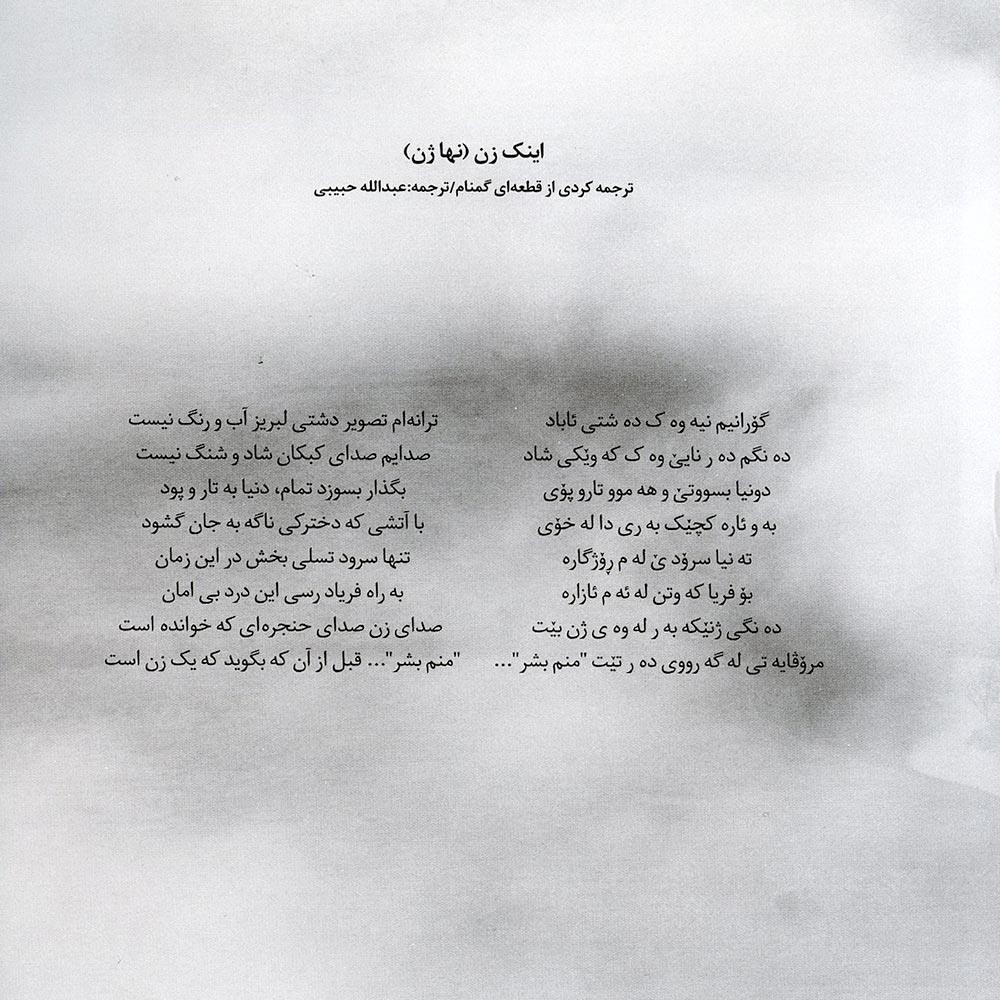 اینک زن (نها ژن)
ترجمه کردی از قطعه‌ای گمنام/ترجمه:عبدالله حبیبی
گۆرانیم نیه وه ک ده شتی ئاباد
ده نگم ده ر نایێ وه ک که وێکی شاد
دونیا بسووتێ و هه موو تارو پۆی
به و ئاره کچێک به ری دا له خۆی
ته نیا سرۆد ێ له م ڕۆژگاره
بۆ فریا که وتن له ئه م ئازاره
ده نگی ژنێکه به ر له وه ی ژن بێت
مرۆڤایه تی له گه رووی ده ر تێت "منم بشر"...
ترانه‌ام تصویر دشتی لبریز آب و رنگ نیست
صدایم صدای کبکان شاد و شنگ نیست
بگذار بسوزد تمام، دنیا به تار و پود
با آتشی که دخترکی ناگه به جان گشود
تنها سرود تسلی بخش در این زمان
به راه فریاد رسی این درد بی امان
صدای زن صدای حنجره‌ای که خوانده است
"منم بشر"... قبل از آن که بگوید که یک زن است